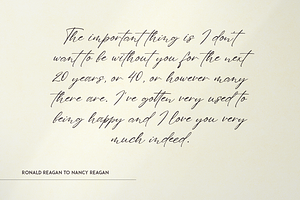 The important thing is I don't
want to be without you for the next
20 years, or 40, or however many
there are. I've gotten very used to
being happy and I love you very
much indeed.
RONALD REAGAN TO NANCY REAGAN